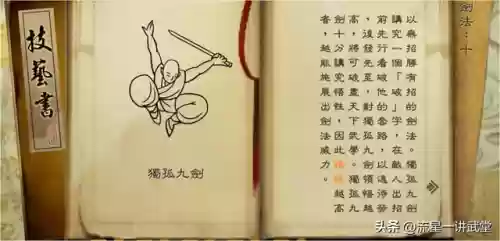 技藝書
獨孤九劍
劍法：十
以無招勝有招的劍法。獨孤九劍
講究一個「破」字，在敵人出招
前先行看破他的套路，以 待發
，後發先至，對獨孤九劍領悟越
高，將可破盡天下武學。獨孤九
劍十分講究悟性，因此 越高
者，越能施展出劍法威力。
头条 @流星一讲武堂